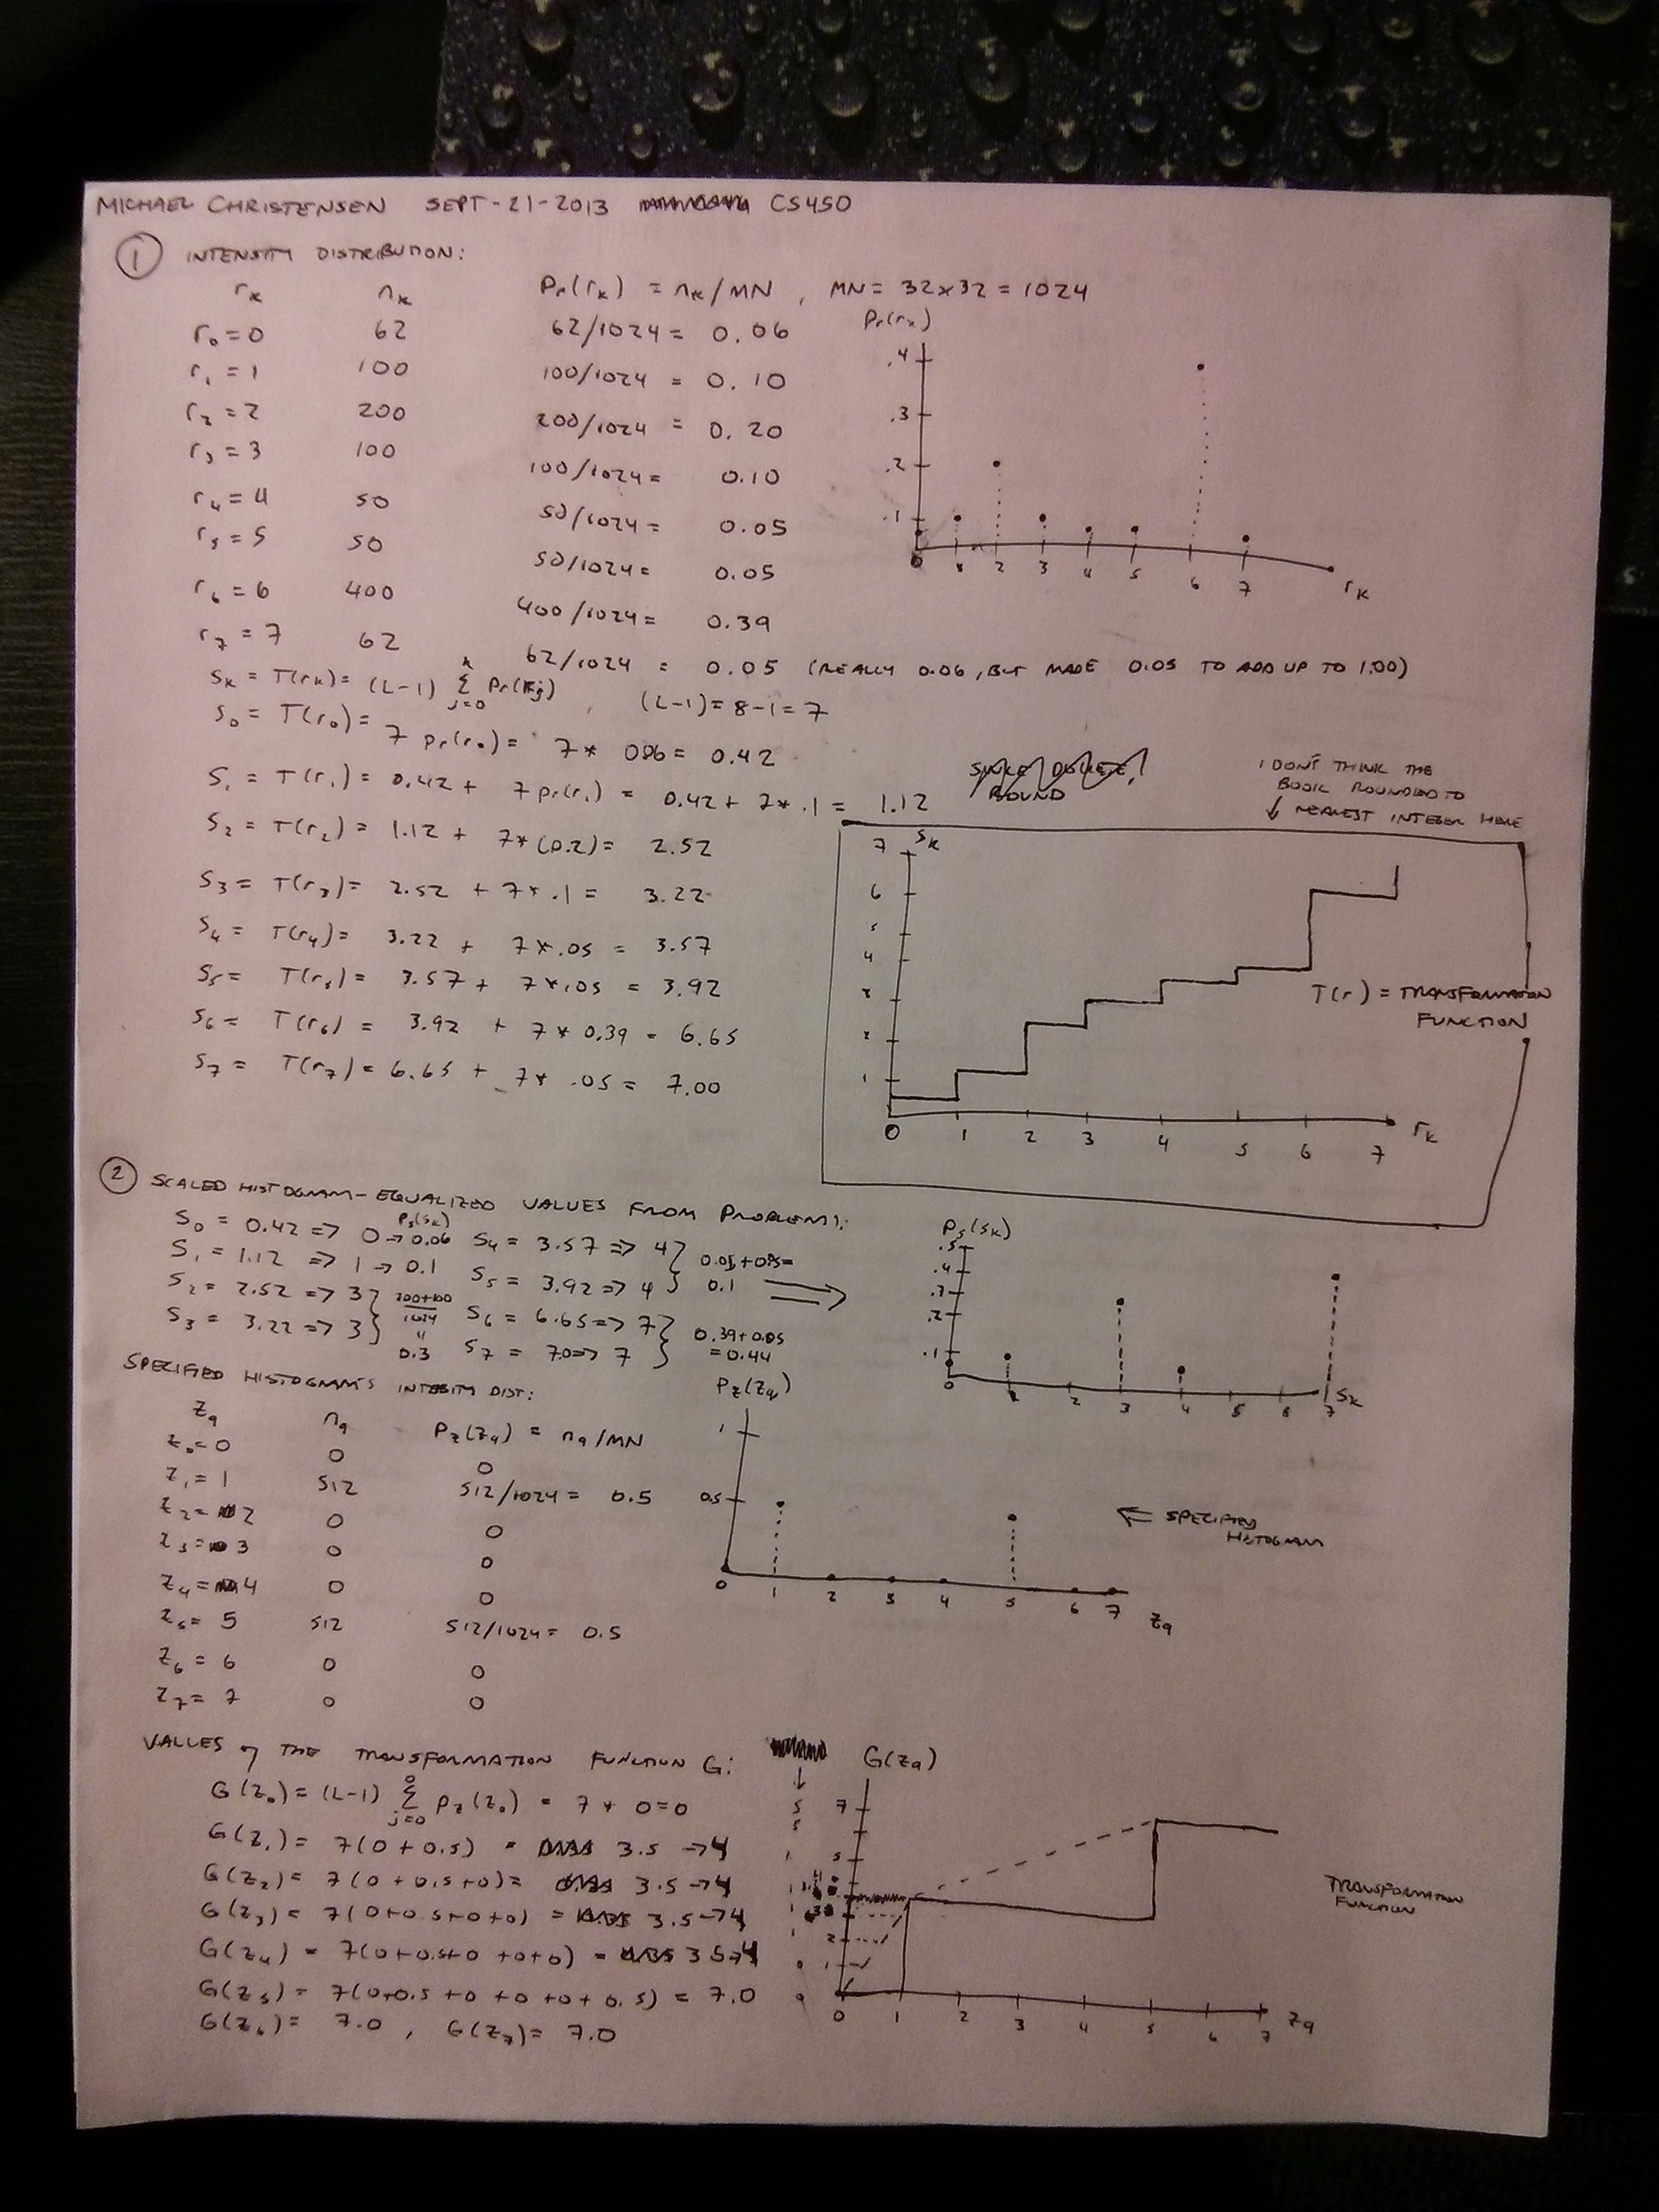 MICHAEL CHRISTENSEN SEPT-21-2013 CS450
① INTENSITY DISTRIBUTION:
rₖ nₖ Pr(rₖ) = nₖ/MN , MN = 32×32 = 1024
r₀ = 0 62 62/1024 = 0.06
r₁ = 1 100 100/1024 = 0.10
r₂ = 2 200 200/1024 = 0.20
r₃ = 3 100 100/1024 = 0.10
r₄ = 4 50 50/1024 = 0.05
r₅ = 5 50 50/1024 = 0.05
r₆ = 6 400 400/1024 = 0.39
r₇ = 7 62 62/1024 = 0.05 (REALLY 0.06, BUT MADE 0.05 TO ADD UP TO 1.00)
Pr(rₖ)
.4
.3
.2
.1
0 1 2 3 4 5 6 7 rₖ
Sₖ = T(rₖ) = (L-1) Σ Pr(rj) , (L-1) = 8-1 = 7
k
j=0
S₀ = T(r₀) = 7 Pr(r₀) = 7 * 0.06 = 0.42
S₁ = T(r₁) = 0.42 + 7 Pr(r₁) = 0.42 + 7 * .1 = 1.12
S₂ = T(r₂) = 1.12 + 7*(0.2) = 2.52
S₃ = T(r₃) = 2.52 + 7 * .1 = 3.22
S₄ = T(r₄) = 3.22 + 7 * .05 = 3.57
S₅ = T(r₅) = 3.57 + 7 * .05 = 3.92
S₆ = T(r₆) = 3.92 + 7 * 0.39 = 6.65
S₇ = T(r₇) = 6.65 + 7 * .05 = 7.00
ROUND
I DON'T THINK THE
BOOK ROUNDED TO
↓ NEAREST INTEGER HERE
Sₖ
7
6
5
4
3
2
1
0 1 2 3 4 5 6 7 rₖ
T(r) = TRANSFORMATION
FUNCTION
② SCALED HISTOGRAM-EQUALIZED VALUES FROM PROBLEM 1:
Ps(Sₖ)
S₀ = 0.42 => 0 → 0.06 S₄ = 3.57 => 4 } 0.05+0.05=
S₁ = 1.12 => 1 → 0.1 S₅ = 3.92 => 4 } 0.1 =>
S₂ = 2.52 => 3 } 200+100/1024 S₆ = 6.65 => 7 } 0.39+0.05
S₃ = 3.22 => 3 } " 0.3 S₇ = 7.0 => 7 } = 0.44
Ps(Sₖ)
.5
.4
.3
.2
.1
0 1 2 3 4 5 6 7 Sₖ
SPECIFIED HISTOGRAM'S INTENSITY DIST:
Zq nq Pz(Zq) = nq/MN
Z₀ = 0 0 0
Z₁ = 1 512 512/1024 = 0.5
Z₂ = 2 0 0
Z₃ = 3 0 0
Z₄ = 4 0 0
Z₅ = 5 512 512/1024 = 0.5
Z₆ = 6 0 0
Z₇ = 7 0 0
Pz(Zq)
1
0.5
0 1 2 3 4 5 6 7 Zq
← SPECIFIED
HISTOGRAM
VALUES of THE TRANSFORMATION FUNCTION G:
G(Z₀) = (L-1) Σ Pz(Z₀) = 7 * 0 = 0
0
j=0
G(Z₁) = 7(0+0.5) = 3.5 → 4
G(Z₂) = 7(0+0.5+0) = 3.5 → 4
G(Z₃) = 7(0+0.5+0+0) = 3.5 → 4
G(Z₄) = 7(0+0.5+0+0+0) = 3.5 → 4
G(Z₅) = 7(0+0.5+0+0+0+0.5) = 7.0
G(Z₆) = 7.0 , G(Z₇) = 7.0
G(Zq)
7
5
2
1
0 1 2 3 4 5 6 7 Zq
TRANSFORMATION
FUNCTION